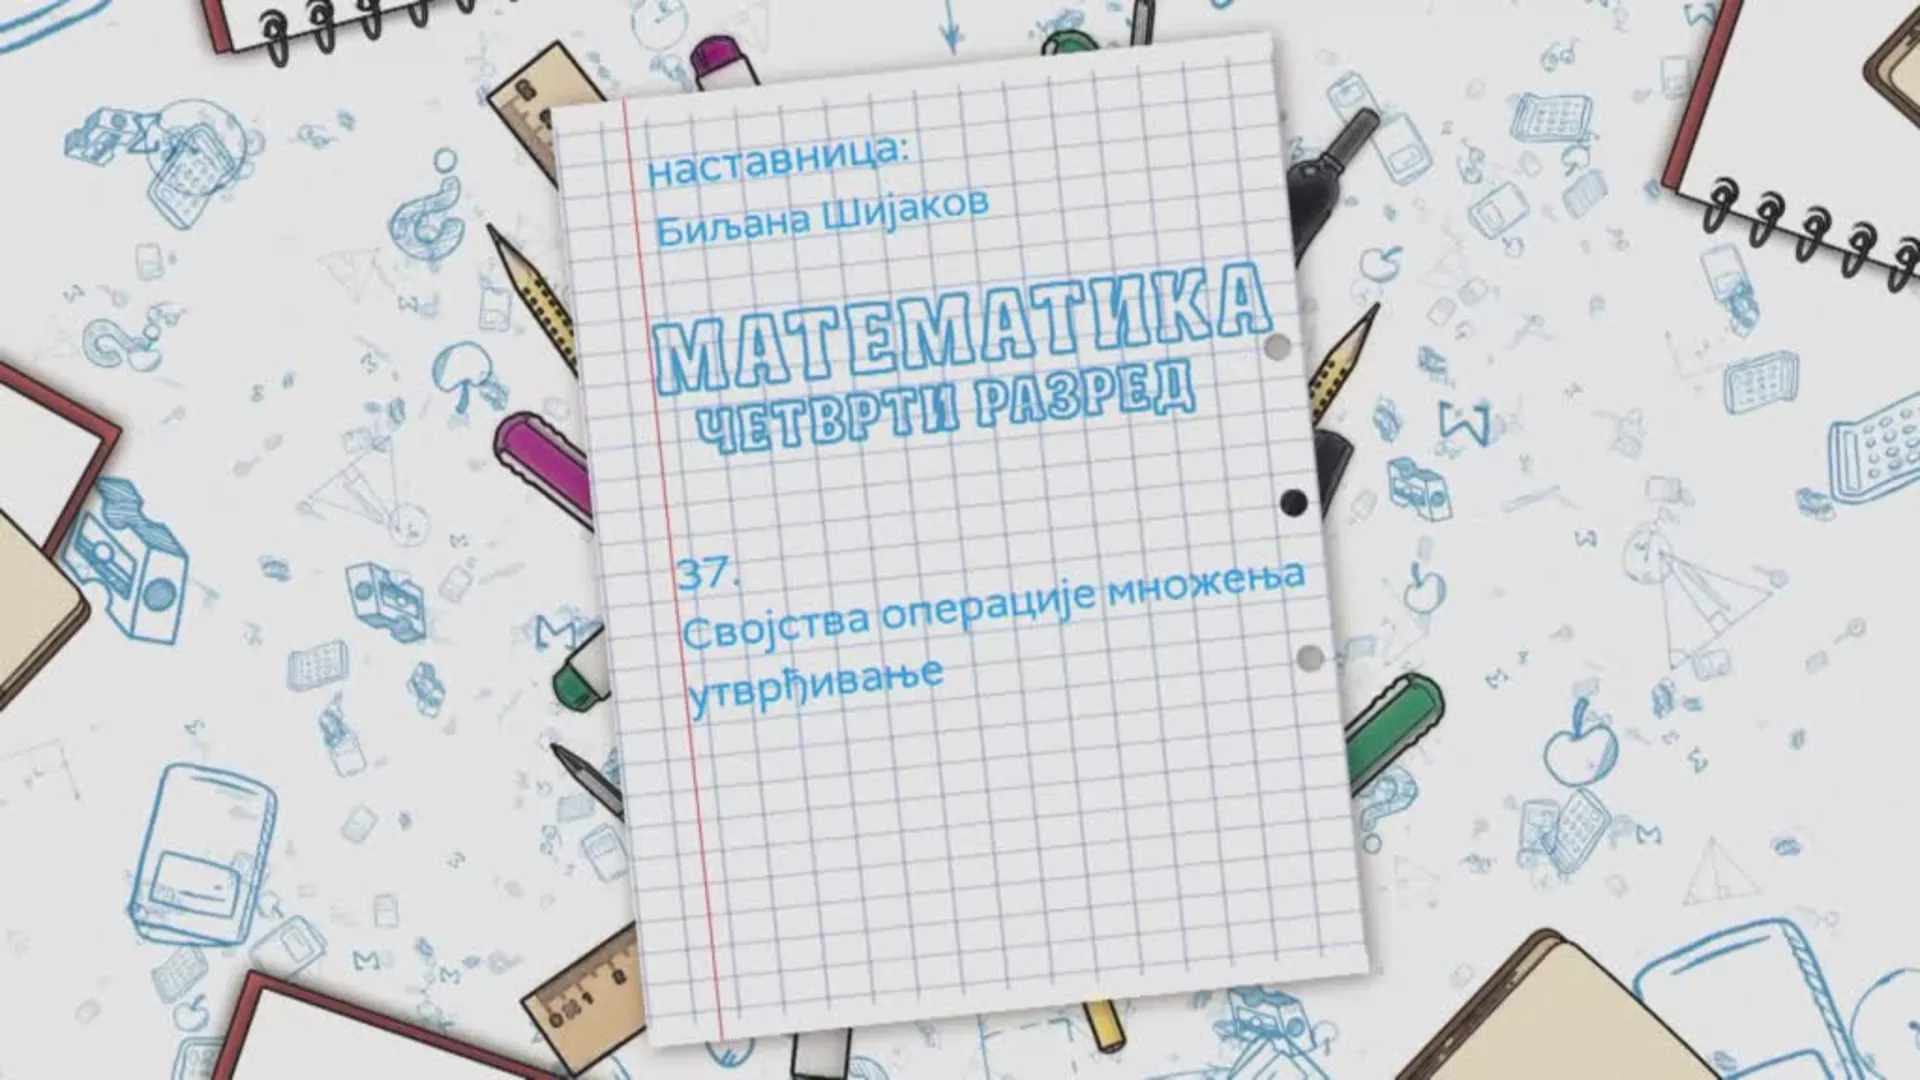 наставница:
Биљана Шијаков
МАТЕМАТИКА
ЧЕТВРТИ РАЗРЕД
37.
Својства операције множења
утврђивање